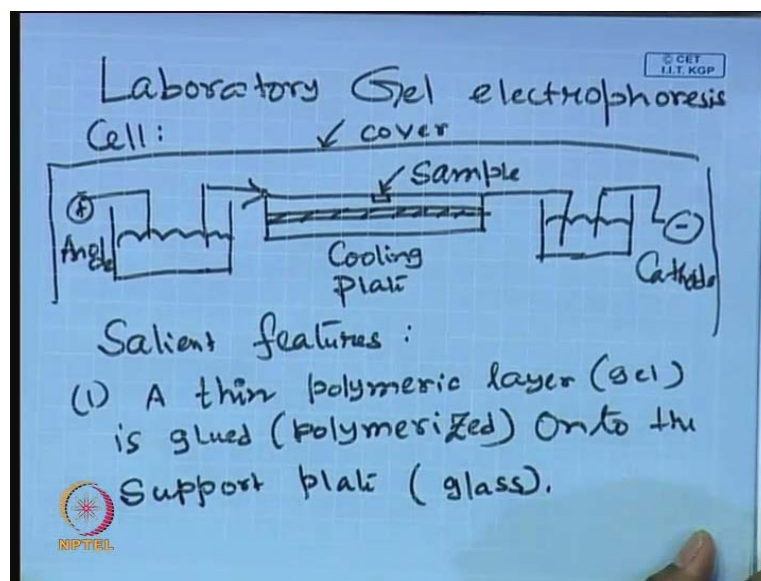 © CET
I.I.T. KGP
Laboratory Gel electrophoresis
Cell:
cover
Sample
+
Anode
Cooling
plate
-
Cathode
Salient features:
(1) A thin polymeric layer (gel)
is glued (polymerized) onto the
support plate (glass).
NPTEL